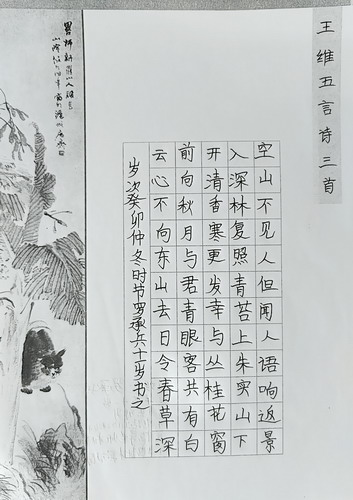 王维五言诗三首
空山不见人但闻人语响返景
入深林复照青苔上朱实山下
开清香寒更发幸与丛桂花窗
前向秋月与君青眼客共有白
云心不向东山去日令春草深
岁次癸卯仲冬时节罗承兵十岁书之